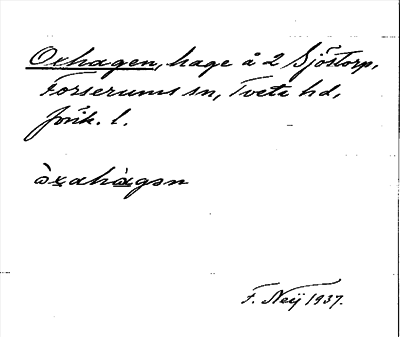 Oxhagen, hage å 2 Sjöstorp,
Forserums sn, Tveta hd,
Jönk. l.
òxahàgən
F. Neij 1937.